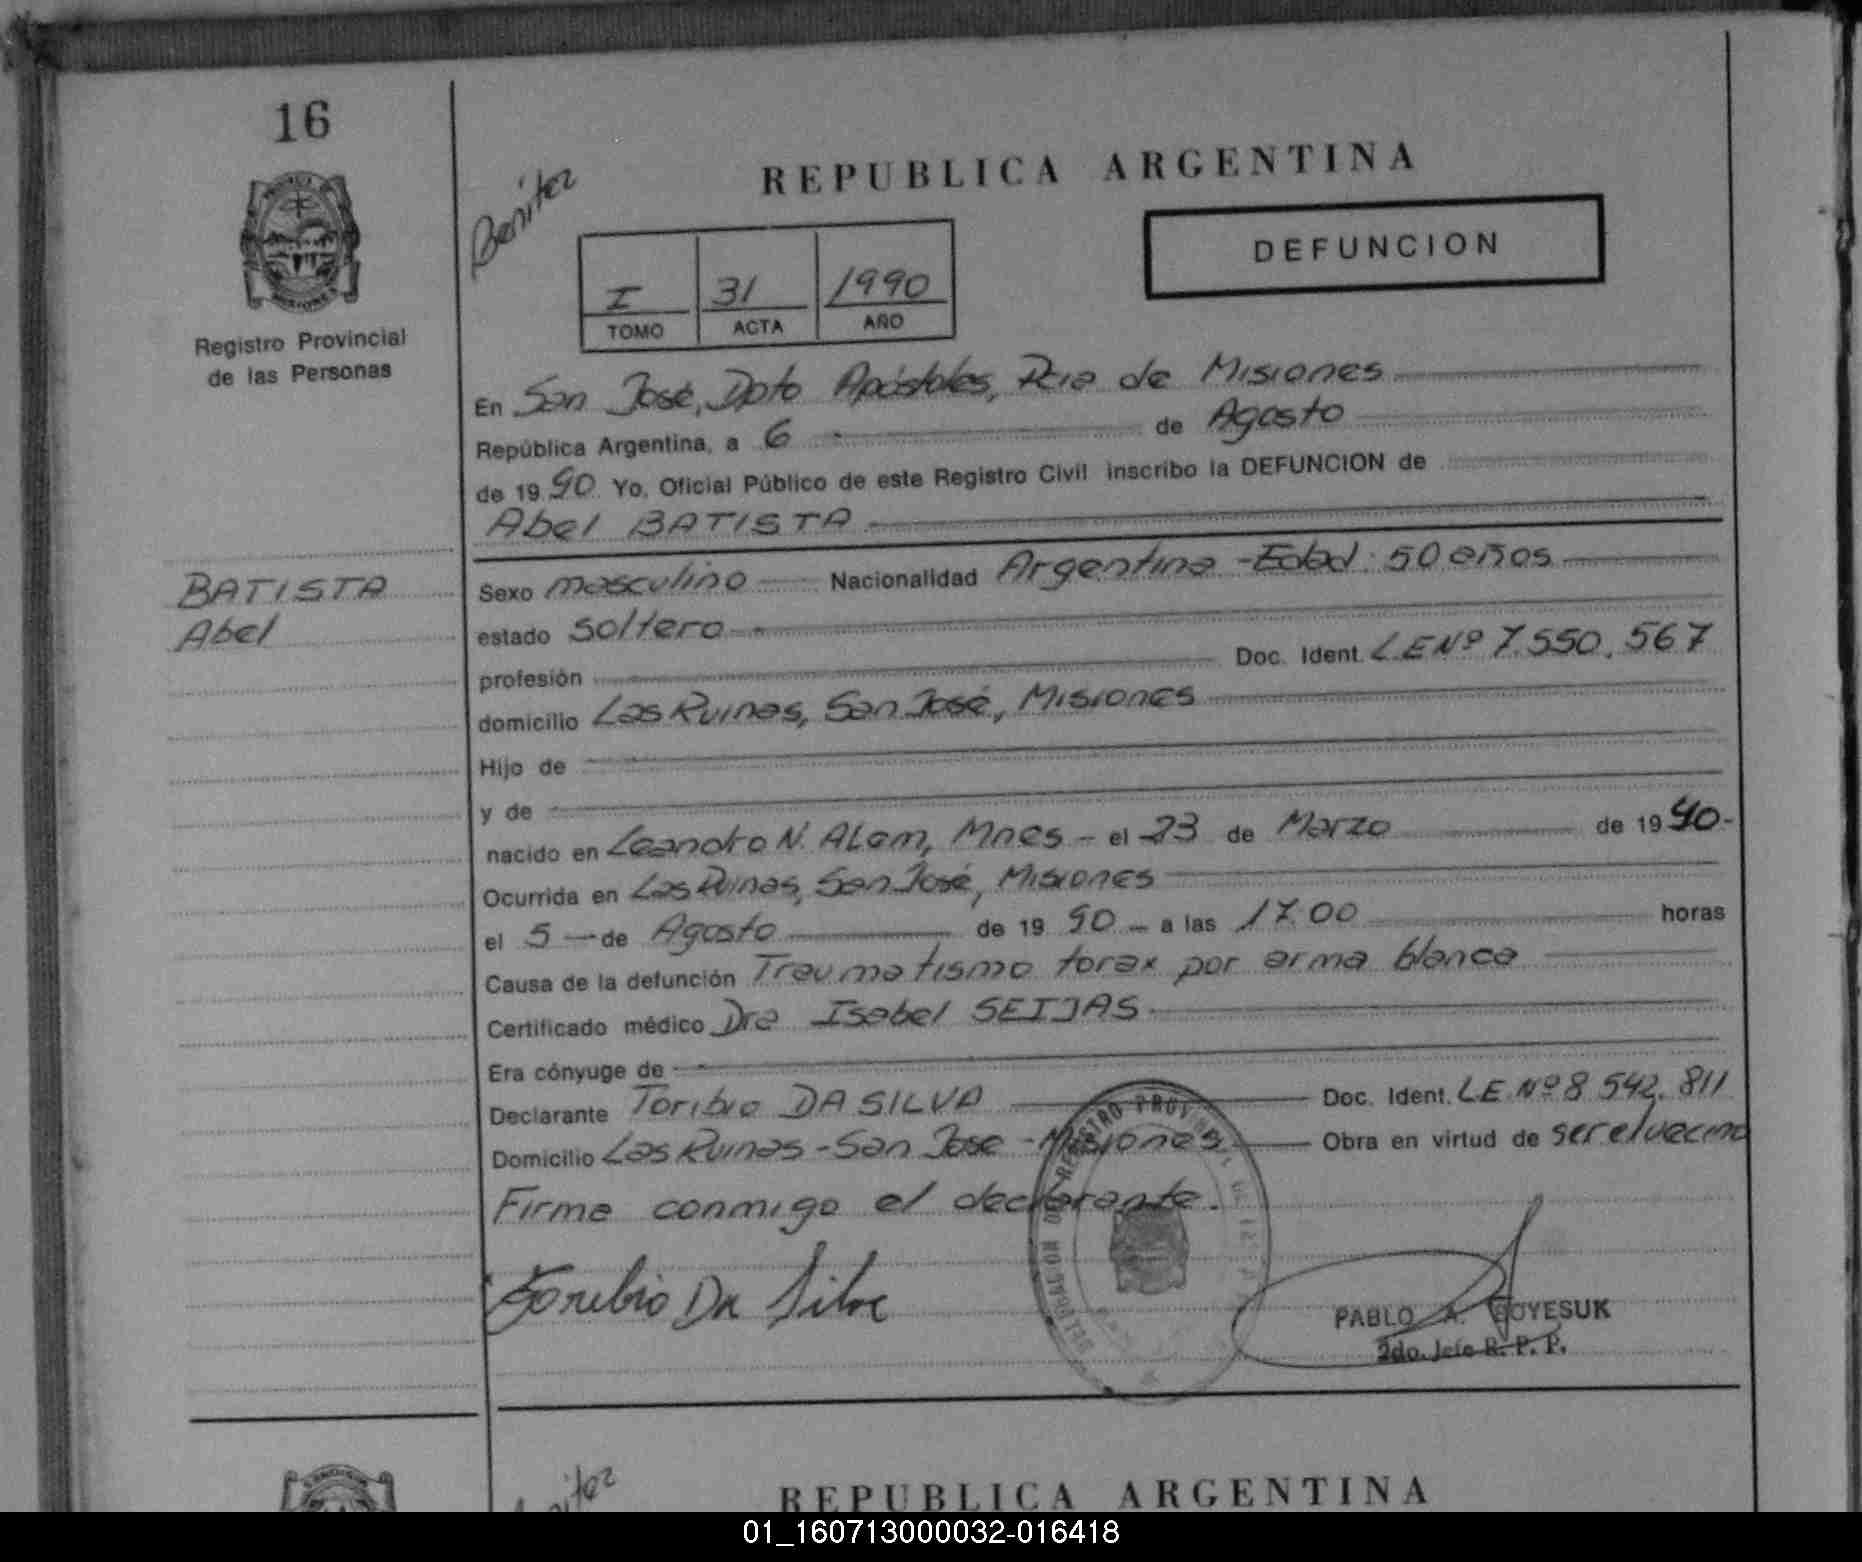 16
REPUBLICA ARGENTINA
Benitez
DEFUNCION
I 31 1990
TOMO ACTA AÑO
Registro Provincial
de las Personas
En San José, Dpto Apóstoles, Pcia de Misiones
República Argentina, a 6 de Agosto
de 1990. Yo, Oficial Público de este Registro Civil inscribo la DEFUNCION de
Abel BATISTA
BATISTA
Abel
Sexo masculino Nacionalidad Argentina - Edad: 50 años
estado soltero
profesión Doc. Ident. L.E Nº 7.550.567
domicilio Las Ruinas, San José, Misiones
Hijo de
y de
nacido en Leandro N. Alem, Mnes - el 23 de Marzo de 1940-
Ocurrida en Las Ruinas, San José, Misiones
el 5 - de Agosto de 1990 - a las 17.00 horas
Causa de la defunción Traumatismo torax por arma blanca
Certificado médico Dra Isabel SEIJAS
Era cónyuge de
Declarante Toribio DA SILVA Doc. Ident. L.E. Nº 8 542.811
Domicilio Las Ruinas - San José - Misiones Obra en virtud de ser el vecino
Firma conmigo el declarante.
Toribio Da Silva
PABLO A. BOYESUK
2do. Jefe R. P. P.
REPUBLICA ARGENTINA
01_160713000032-016418